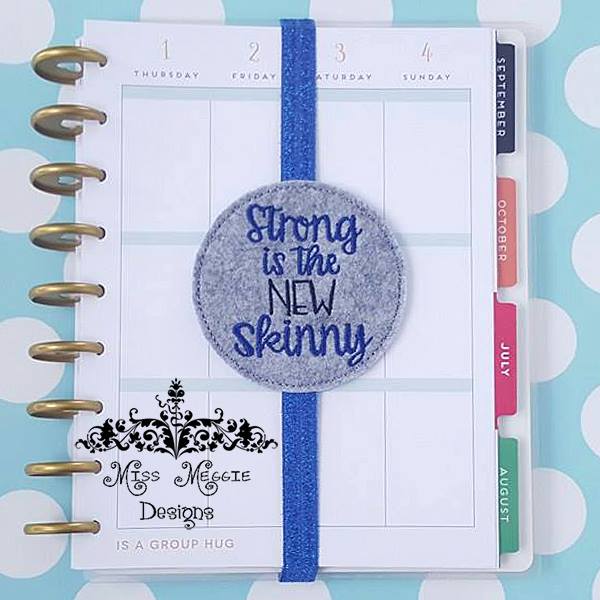 1 2 3 4
THURSDAY FRIDAY SATURDAY SUNDAY
SEPTEMBER
OCTOBER
JULY
AUGUST
Strong
is the
NEW
Skinny
Miss Meggie
Designs
IS A GROUP HUG